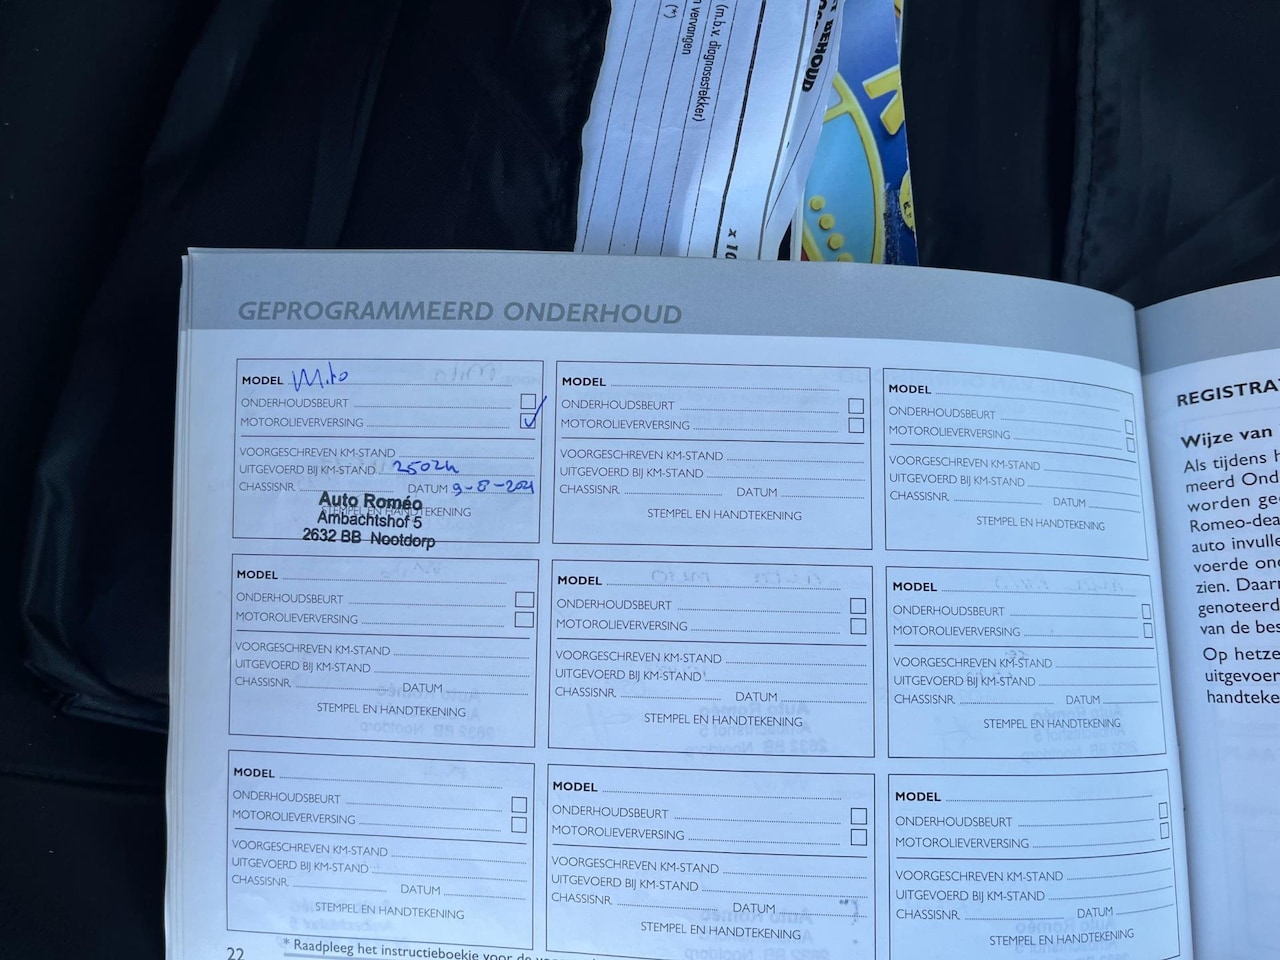 BEHOUD
(m.b.v. diagnosestekker)
n vervangen
(*)
GEPROGRAMMEERD ONDERHOUD
MODEL Mito
ONDERHOUDSBEURT
MOTOROLIEVERVERSING
VOORGESCHREVEN KM-STAND
UITGEVOERD BIJ KM-STAND 25024
CHASSISNR. DATUM
STEMPEL EN HANDTEKENING
Auto Roméo
Ambachtshof 5
2632 BB Nootdorp
MODEL
ONDERHOUDSBEURT
MOTOROLIEVERVERSING
VOORGESCHREVEN KM-STAND
UITGEVOERD BIJ KM-STAND
CHASSISNR. DATUM
STEMPEL EN HANDTEKENING
MODEL
ONDERHOUDSBEURT
MOTOROLIEVERVERSING
VOORGESCHREVEN KM-STAND
UITGEVOERD BIJ KM-STAND
CHASSISNR. DATUM
STEMPEL EN HANDTEKENING
MODEL
ONDERHOUDSBEURT
MOTOROLIEVERVERSING
VOORGESCHREVEN KM-STAND
UITGEVOERD BIJ KM-STAND
CHASSISNR. DATUM
STEMPEL EN HANDTEKENING
MODEL
ONDERHOUDSBEURT
MOTOROLIEVERVERSING
VOORGESCHREVEN KM-STAND
UITGEVOERD BIJ KM-STAND
CHASSISNR. DATUM
STEMPEL EN HANDTEKENING
MODEL
ONDERHOUDSBEURT
MOTOROLIEVERVERSING
VOORGESCHREVEN KM-STAND
UITGEVOERD BIJ KM-STAND
CHASSISNR. DATUM
STEMPEL EN HANDTEKENING
MODEL
ONDERHOUDSBEURT
MOTOROLIEVERVERSING
VOORGESCHREVEN KM-STAND
UITGEVOERD BIJ KM-STAND
CHASSISNR. DATUM
STEMPEL EN HANDTEKENING
MODEL
ONDERHOUDSBEURT
MOTOROLIEVERVERSING
VOORGESCHREVEN KM-STAND
UITGEVOERD BIJ KM-STAND
CHASSISNR. DATUM
STEMPEL EN HANDTEKENING
MODEL
ONDERHOUDSBEURT
MOTOROLIEVERVERSING
VOORGESCHREVEN KM-STAND
UITGEVOERD BIJ KM-STAND
CHASSISNR. DATUM
STEMPEL EN HANDTEKENING
22
* Raadpleeg het instructieboekje voor de
REGISTRAT
Wijze van
Als tijdens h
meerd Ond
worden gec
Romeo-dea
auto invulle
voerde ond
zien. Daarn
genoteerd
van de bes
Op hetze
uitgevoer
handteke